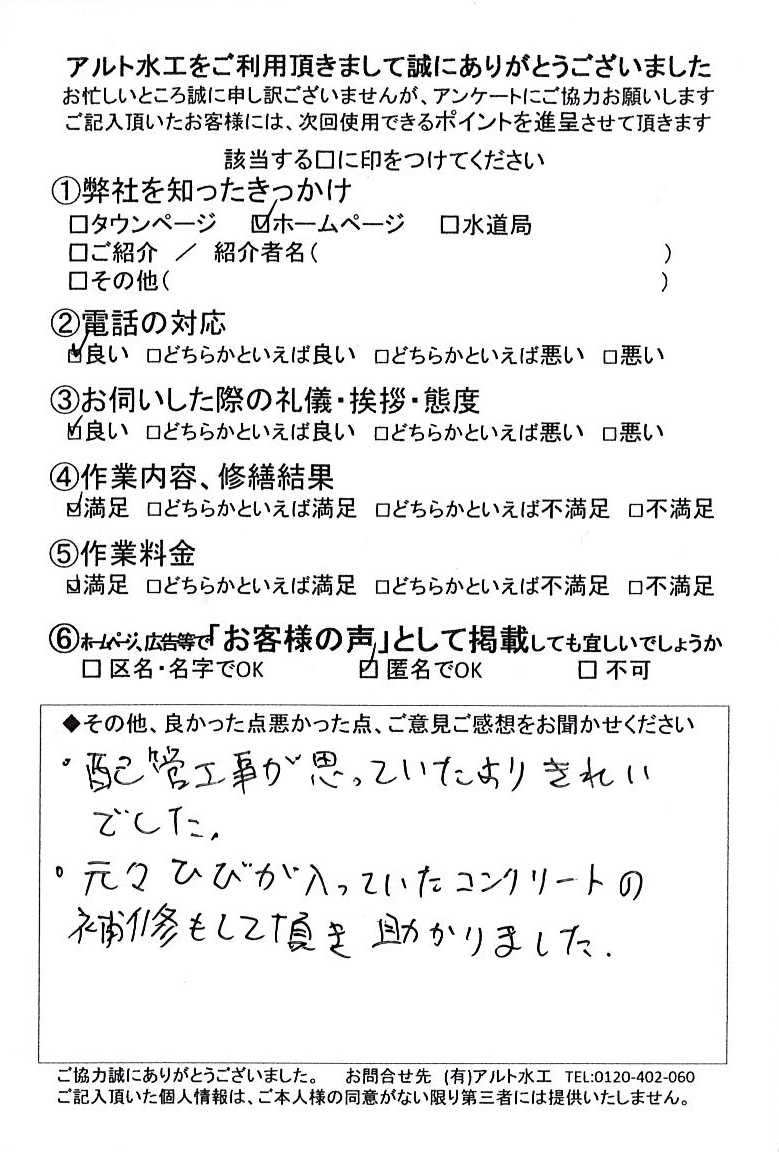 アルト水工をご利用頂きまして誠にありがとうございました
お忙しいところ誠に申し訳ございませんが、アンケートにご協力お願いします
ご記入頂いたお客様には、次回使用できるポイントを進呈させて頂きます
該当する□に印をつけてください
①弊社を知ったきっかけ
□タウンページ ☑ホームページ □水道局
□ご紹介 ／ 紹介者名( )
□その他( )
②電話の対応
☑良い □どちらかといえば良い □どちらかといえば悪い □悪い
③お伺いした際の礼儀・挨拶・態度
☑良い □どちらかといえば良い □どちらかといえば悪い □悪い
④作業内容、修繕結果
☑満足 □どちらかといえば満足 □どちらかといえば不満足 □不満足
⑤作業料金
☑満足 □どちらかといえば満足 □どちらかといえば不満足 □不満足
⑥ホームページ、広告等で「お客様の声」として掲載しても宜しいでしょうか
□ 区名・名字でOK ☑ 匿名でOK □ 不可
◆その他、良かった点悪かった点、ご意見ご感想をお聞かせください
・配管工事が思っていたよりきれい
でした.
・元々ひびが入っていたコンクリートの
補修もして頂き助かりました.
ご協力誠にありがとうございました。 お問合せ先 (有)アルト水工 TEL:0120-402-060
ご記入頂いた個人情報は、ご本人様の同意がない限り第三者には提供いたしません。